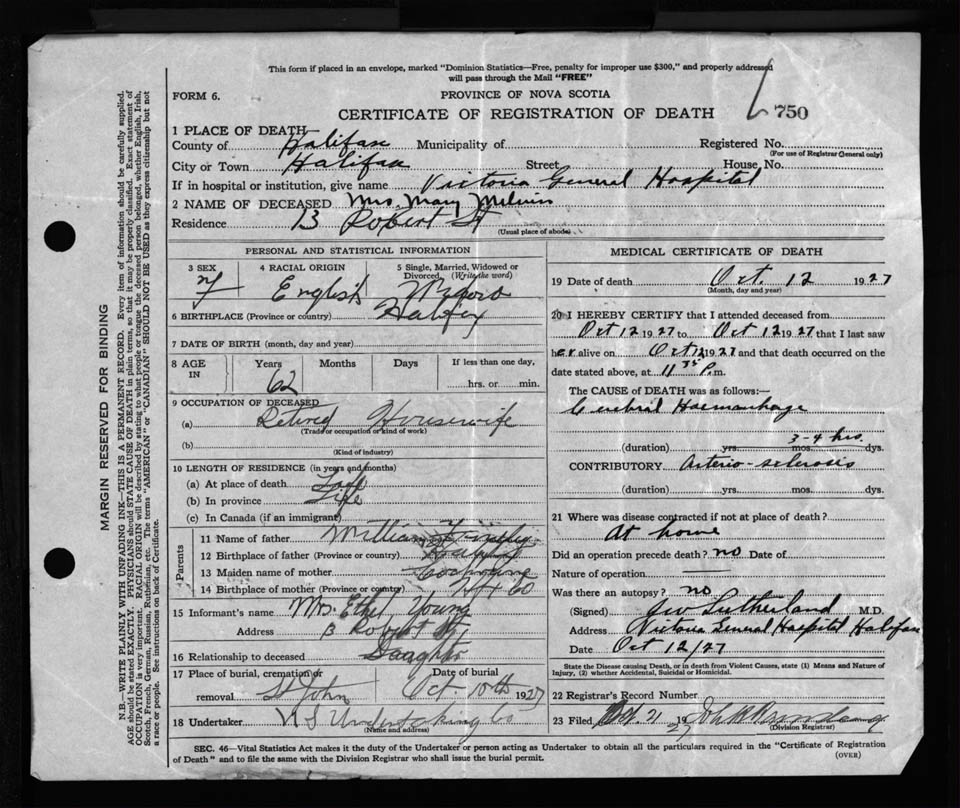 This form if placed in an envelope, marked "Dominion Statistics—Free, penalty for improper use $300," and properly addressed
will pass through the Mail "FREE"
FORM 6.
PROVINCE OF NOVA SCOTIA
CERTIFICATE OF REGISTRATION OF DEATH
750
1 PLACE OF DEATH
County of Halifax Municipality of Registered No.
(For use of Registrar General only)
City or Town Halifax Street House No.
If in hospital or institution, give name Victoria General Hospital
2 NAME OF DECEASED Mrs. Mary Melvin
Residence 13 Robert St
(Usual place of abode)
PERSONAL AND STATISTICAL INFORMATION
3 SEX 4 RACIAL ORIGIN 5 Single, Married, Widowed or Divorced (Write the word)
English
6 BIRTHPLACE (Province or country) Halifax
7 DATE OF BIRTH (month, day and year)
8 AGE IN Years Months Days If less than one day,
62 hrs. or min.
9 OCCUPATION OF DECEASED
(a) Retired Housewife
(Trade or occupation or kind of work)
(b)
(Kind of industry)
10 LENGTH OF RESIDENCE (in years and months)
(a) At place of death Life
(b) In province Life
(c) In Canada (if an immigrant)
Parents
11 Name of father William
12 Birthplace of father (Province or country)
13 Maiden name of mother Cochrane
14 Birthplace of mother (Province or country) Hfx Co
15 Informant's name Mrs. Ethel Young
Address 13 Robert St
16 Relationship to deceased Daughter
17 Place of burial, cremation or removal Date of burial
St John Oct 1927
18 Undertaker N S Undertaking Co
(Name and address)
MEDICAL CERTIFICATE OF DEATH
19 Date of death Oct. 12 1927
(Month, day and year)
20 I HEREBY CERTIFY that I attended deceased from
Oct 12 1927 to Oct 12 1927 that I last saw
her alive on Oct 12 1927 and that death occurred on
date stated above, at 11 P.m.
The CAUSE of DEATH was as follows:
Cerebral Haemorrhage
3-4 hrs.
(duration) yrs. mos. dys.
CONTRIBUTORY Arterio-sclerosis
(duration) yrs. mos. dys.
21 Where was disease contracted if not at place of death?
At home
Did an operation precede death? no Date of
Nature of operation
Was there an autopsy? no
(Signed) Sutherland M.D.
Address Victoria General Hospital Halifax
Date Oct 12/27
State the Disease causing Death, or in death from Violent Causes, state (1) Means and Nature of
Injury, (2) whether Accidental, Suicidal or Homicidal.
22 Registrar's Record Number
23 Filed Oct 21 1927
(Division Registrar)
SEC. 46—Vital Statistics Act makes it the duty of the Undertaker or person acting as Undertaker to obtain all the particulars required in the "Certificate of Registration
of Death" and to file the same with the Division Registrar who shall issue the burial permit.
(OVER)
MARGIN RESERVED FOR BINDING
N.B.—WRITE PLAINLY WITH UNFADING INK—THIS IS A PERMANENT RECORD. Every item of information should be carefully supplied.
AGE should be stated EXACTLY. PHYSICIANS should STATE CAUSE OF DEATH in plain terms, so that it may be properly classified. Exact statement of
OCCUPATION is very important. RACIAL ORIGIN will be described by stating to what people or tongue the deceased person belonged, whether English, Irish,
Scotch, French, German, Russian, Ruthenian, etc. The terms "AMERICAN" or "CANADIAN" SHOULD NOT BE USED as they express citizenship but not
a race or people. See instructions on back of Certificate.